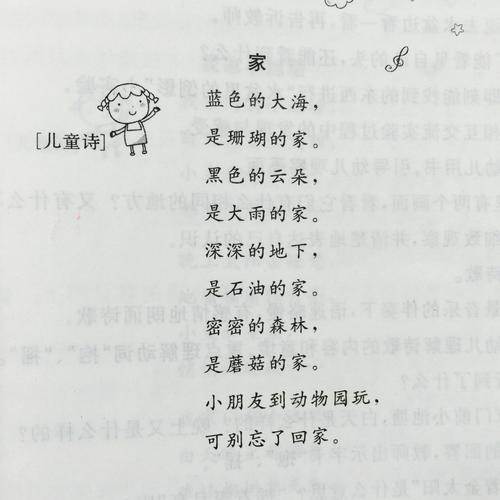 家
蓝色的大海，
是珊瑚的家。
[儿童诗]
黑色的云朵，
是大雨的家。
深深的地下，
是石油的家。
密密的森林，
是蘑菇的家。
小朋友到动物园玩，
可别忘了回家。